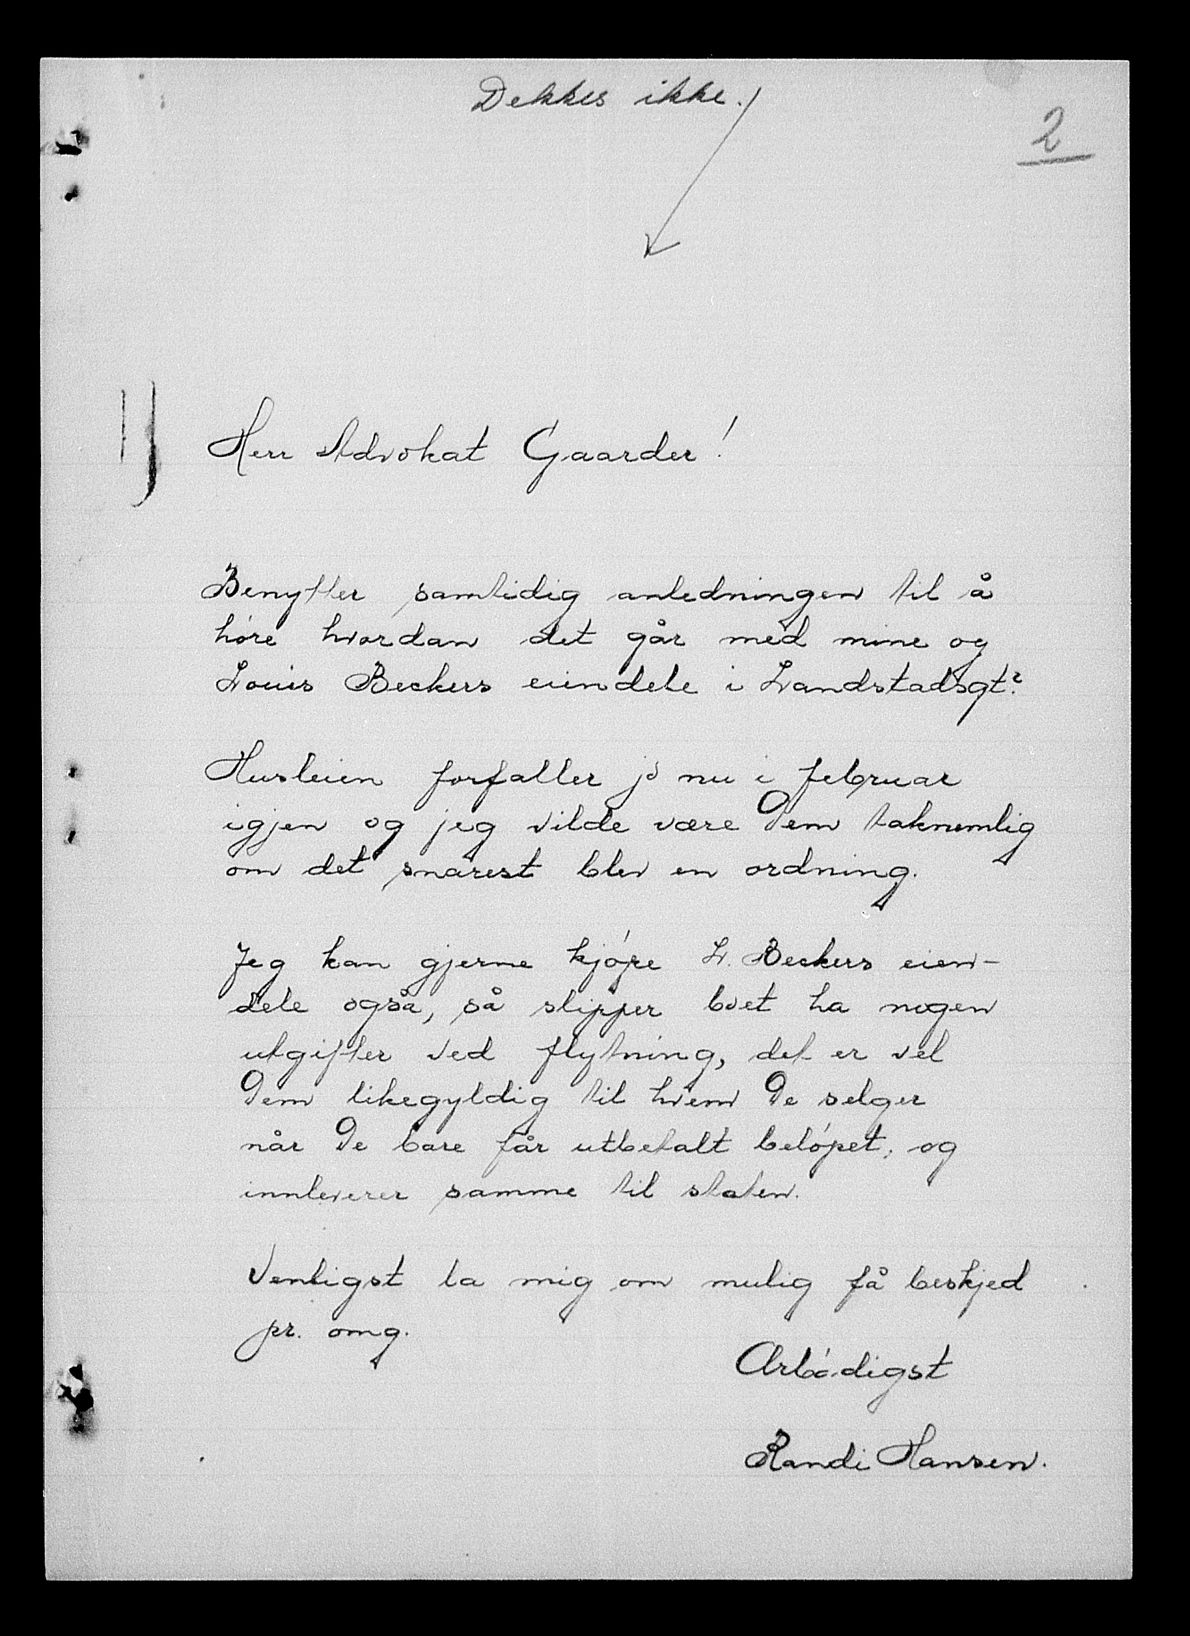 Dekkes ikke.
2
Herr Advokat Gaarder!
Benytter samtidig anledningen til å
høre hvordan det går med mine og
Louis Beckers eiendele i Landstadsgt?
Husleien forfaller jo nu i februar
igjen og jeg vilde være Dem taknemlig
om det snarest blev en ordning.
Jeg kan gjerne kjøpe L. Beckers eien-
dele også, så slipper boet ha nogen
utgifter ved flytning, det er vel
Dem likegyldig til hvem De selger
når De bare får utbetalt beløpet, og
innleverer samme til staten.
Venligst la mig om mulig få beskjed
pr. omg.
Arbødigst
Randi Hansen.